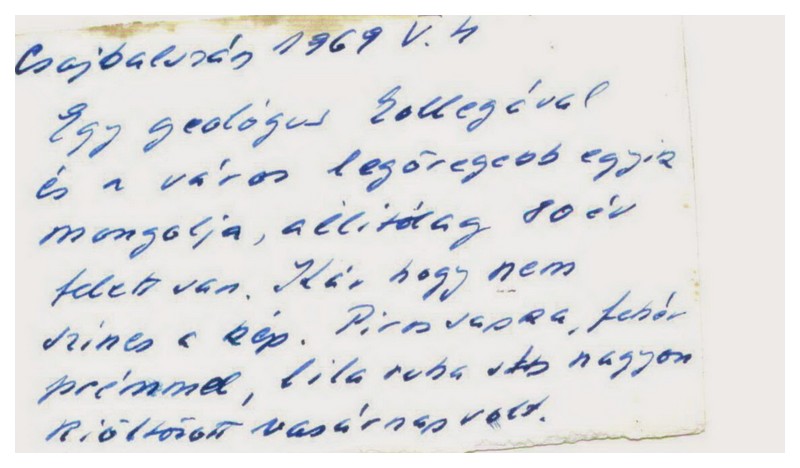 Csojbalszán 1969 V. 4
Egy geológus kollegával
és a város legöregebb egyik
mongolja, állitólag 80 év
felett van. Kár hogy nem
színes a kép. Piros vapka, fehér
prémmel, lila ruha stb nagyon
kiöltözött vasárnap volt.